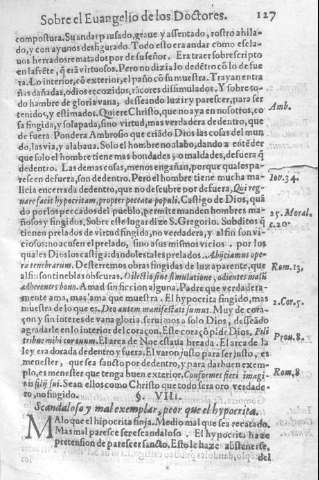 Sobre el Euangelio de los Doctores. 127
compostura. Su andar pausado, graue y assentado, rostro ahila-
do, y con ayunos desfigurado. Todo esto era andar como escla-
uos herrados rematados por de su señor. Era traer sobrescripto
en la frēte, q̄ erā virtuosos. Pero no dizia lo de dētro cō lo de fue
ra. Lo interior, cō exterior, el paño cō su muestra. Trayan entra
ñas dañadas, odios recozidos, rācores dissimulados. Y sobre to-
do hambre de gloria vana, desseando luzir y parescer, para ser
tenidos, y estimados. Quiere Christo, que no aya en nosotros, co
sa fingida, y solapada, sino virtud, mas verdadera dentro, que
de fuera. Pondera Ambrosio que criādo Dios las cosas del mun
do, las via, y alabaua. Solo el hombre no alabo, dando a entēder
que solo el hombre tiene mas bondades, o maldades, de fuera q̄
de dētro. Las demas cosas, menos engañan, porque quales pa-
rescen de fuera, son de dentro. Pero el hombre tiene mucha ma-
licia encerrada de dentro, que no descubre por defuera. Qui reg-
nare facit hypocritam, propter peccata populi. Castigo de Dios, quā
do por los peccados del pueblo, permite manden hombres ma-
ñosos y fingidos. Sobre este lugar dize S. Gregorio. Subditos q̄
tienen prelados de virtud fingida, no verdadera, y al fin son vi-
ciosos: no acusen el prelado, sino a sus mismos vicios, por los
quales Dios los castiga: dandoles tal prelado. Abijciamus ope-
ra tenebrarum. Desterremos obras fingidas de luz aparente, que
al fin son tinieblas obscuras. Dilectio sine simulatione, odientes malū
adherentes bono. Amad sin ficcion alguna. Padre que verdadera-
mente ama, mas ama que muestra. El hypocrita fingido, mas
muestra de lo que es. Deo autem manifestati sumus. Muy de cora-
çon y sin interes de vana gloria, seruimos a solo Dios, desseādo
agradarle en lo interior del coraçon. Este coraçō pide Dios. Fili
tribue mihi cor tuum. El arca de Noe estaua breada. El arca de la
ley era dorada de dentro y fuera. El varon justo para ser justo, es
menester, que sea sancto por dedentro, y para dar buen exem-
plo, es menester que tenga buen exterior. Conformes fieri imagi-
nis filij sui. Sean ellos como Christo que todo sera oro verdade-
ro, no fingido.
§. VII.
Scandaloso y mal exemplar, peor que el hypocrita.
Malo que el hipocrita finja. Medio mal que sea recatado.
Mas mal paresce ser escandaloso. El hypocrita haze
pretension de parescer sancto. Esto le haze abstenerse,
del
Amb.
Iob. 34.
25. Moral.
c. 20.
Rom. 13,
2. Cor. 5.
Prou. 8.
Rom. 8